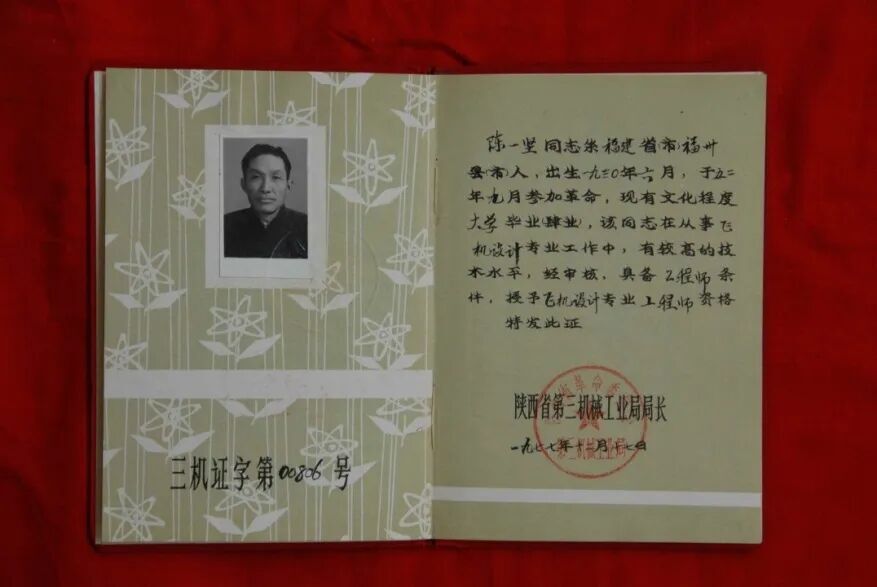 三机证字第00806号
陈一坚同志系福建省(市)福州
县(市)人，出生一九三〇年六月，于五二
年九月参加革命，现有文化程度
大学毕业(肆业)，该同志在从事飞
机设计专业工作中，有较高的技
术水平，经审核，具备工程师条
件，授予飞机设计专业工程师资格
特发此证
陕西省第三机械工业局局长
一九七七年十二月十七日
第三机械工业局